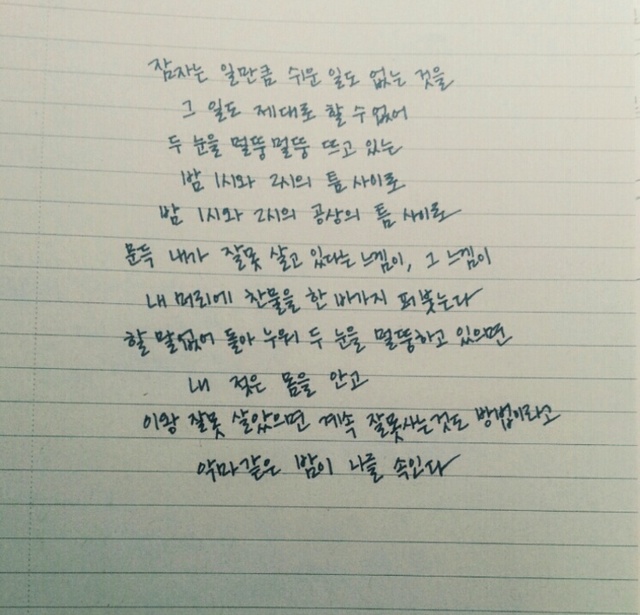 잠자는 일만큼 쉬운 일도 없는 것을
그 일도 제대로 할 수 없어
두 눈을 멀뚱멀뚱 뜨고 있는
밤 1시와 2시의 틈 사이로
밤 1시와 2시의 공상의 틈 사이로
문득 내가 잘못 살고 있다는 느낌이, 그 느낌이
내 머리에 찬물을 한 바가지 퍼붓는다
할 말없어 돌아 누워 두 눈을 멀뚱하고 있으면
내 젖은 몸을 안고
이왕 잘못 살았으면 계속 잘못사는것도 방법이라고
악마같은 밤이 나를 속인다